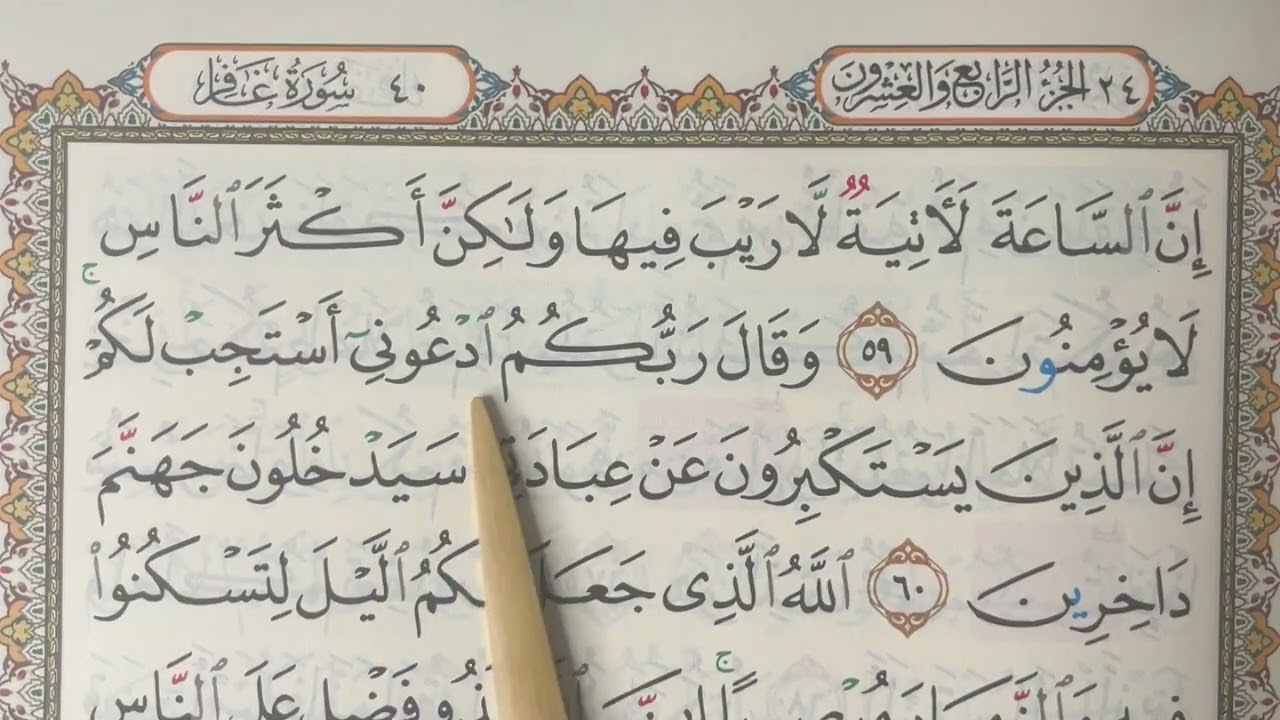 ٢٤ الجزء الرابع والعشرون
٤٠ سورة غافر
إِنَّ ٱلسَّاعَةَ لَأٓتِيَةٌ لَّا رَيْبَ فِيهَا وَلَٰكِنَّ أَكْثَرَ ٱلنَّاسِ
لَا يُؤْمِنُونَ ٥٩ وَقَالَ رَبُّكُمُ ٱدْعُونِىٓ أَسْتَجِبْ لَكُمْ ج
إِنَّ ٱلَّذِينَ يَسْتَكْبِرُونَ عَنْ عِبَادَتِى سَيَدْخُلُونَ جَهَنَّمَ
دَاخِرِينَ ٦٠ ٱللَّهُ ٱلَّذِى جَعَلَ لَكُمُ ٱلَّيْلَ لِتَسْكُنُوا۟
فَضْلٍ عَلَى ٱلنَّاسِ